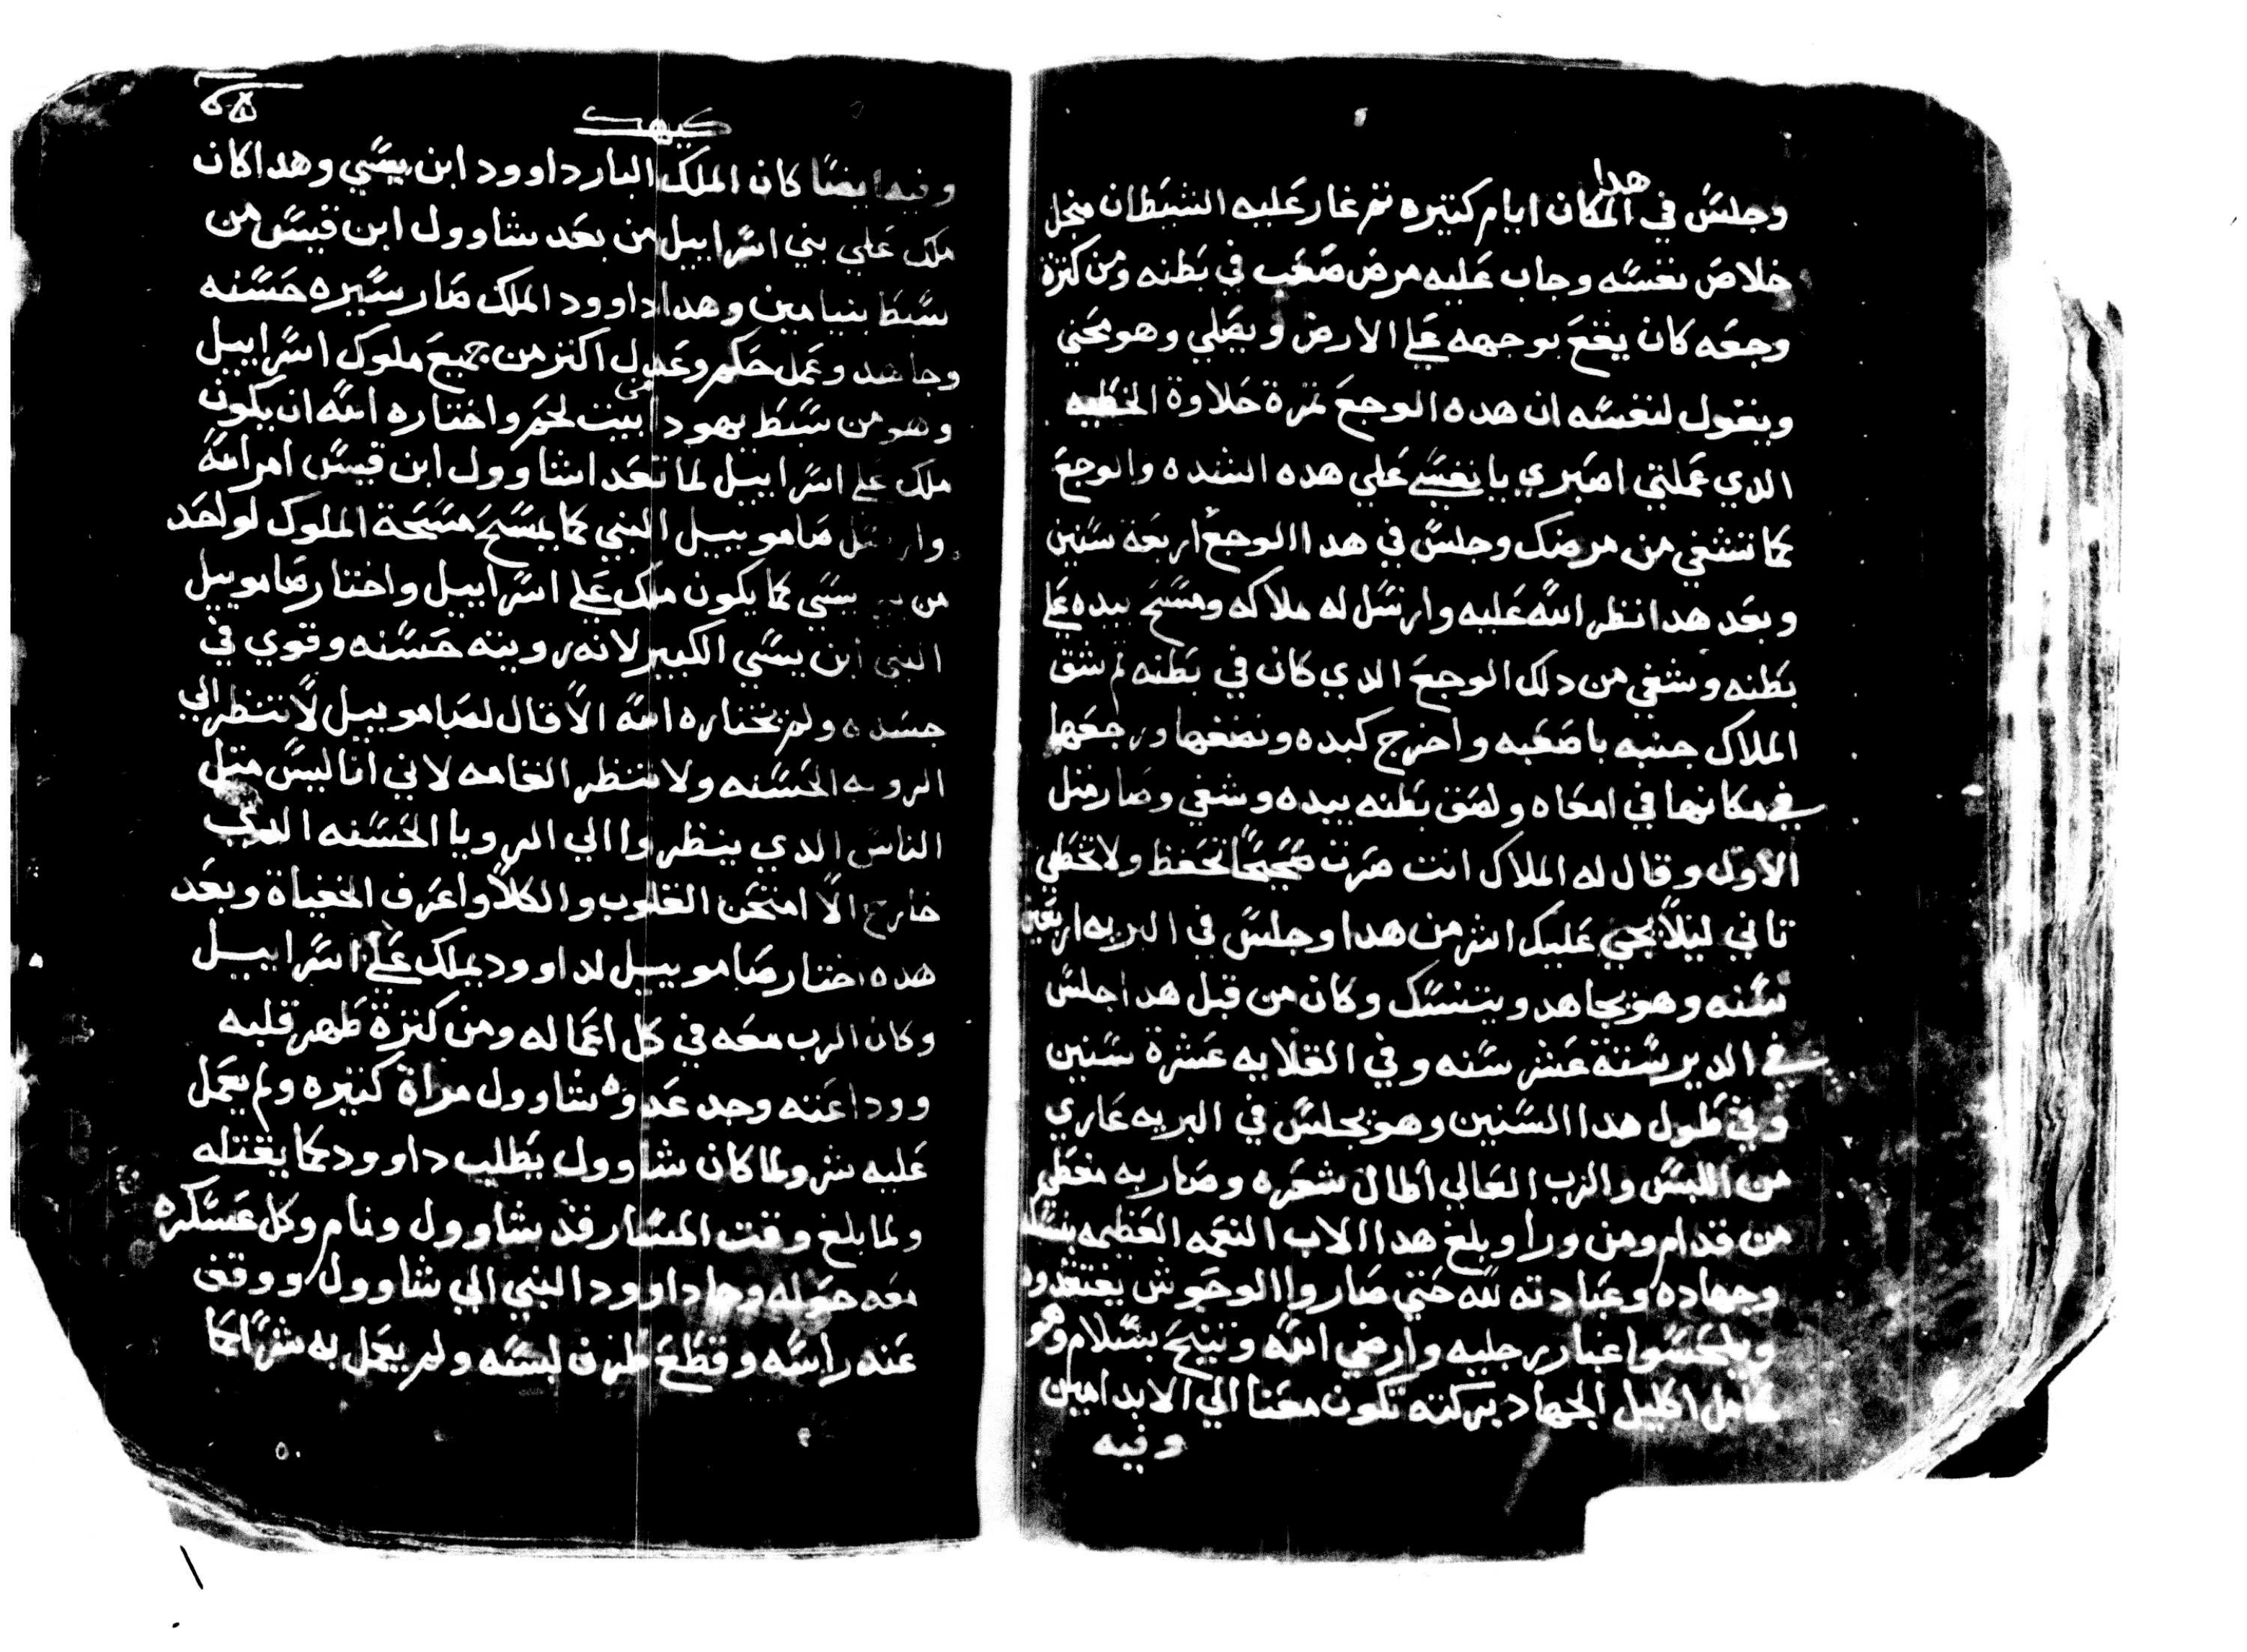 هدا
وجلس في المكان ايام كتيره تم غار عليه الشيطان منجل
خلاص نفسه وجاب عليه مرض صعب في بطنه ومن كترة
وجعه كان يقع بوجهه علي الارض ويصلي وهو محني
ويقول لنفسه ان هده الوجع تمرة حلاوة الخطيه
الدي عملتي اصبري يا نفسي علي هده الشده والوجع
كما تشفي من مرضك وجلس في هدا الوجع اربعة سنين
وبعد هدا نظر الله عليه وارسل له ملاكه ومسح بيده علي
بطنه وشفي من دلك الوجع الدي كان في بطنه تم شق
الملاك جنبه باصعبه واخرج كبده ونضفها ورجعها
في مكانها في امعاه ولصق بطنه بيده وشفي وصار متل
الاول وقال له الملاك انت صرت صحيحًا تحفظ ولا تخطي
تاني ليلاً يجي عليك اشر من هدا وجلس في البريه اربعين
سنه وهو يجاهد ويتنسك وكان من قبل هدا جلس
في الدير ستة عشر سنه وفي القلايه عشرة سنين
وفي طول هدا السنين وهو يجلس في البريه عاري
من اللبس والرب العالي اطال شعره وصار به متغطي
من قدام ومن ورا وبلغ هدا الاب النعمه العظيمه بنسكه
وجهاده وعبادته لله حتي صاروا الوحوش يفتقدوه
ويلحسوا غبار رجليه وارضي الله وتنيح بسلام وهو
كامل اكليل الجهاد بركته تكون معنا الي الابد امين
وفيه
كيهك
وفيه ايضًا كان الملك البار داوود ابن يسي وهدا كان
ملك علي بني اسراييل من بعد شاوول ابن قيس من
سبط بنيامين وهدا داوود الملك صار سيره حسنه
وجاهد وعمل حكم وعدل اكتر من جميع ملوك اسراييل
وهو من سبط يهودا من بيت لحم واختاره الله ان يكون
ملك علي اسراييل لما تعدا شاوول ابن قيس امر الله
وارسل صاموييل النبي كما يمسح مسحة الملوك لواحد
من يسي كما يكون ملك علي اسراييل واختار صاموييل
النبي ابن يسي الكبير لانه رويته حسنه وقوي في
جسده ولم يختاره الله الا قال لصاموييل لا تنظر الي
الرويه الحسنه ولا تنظر القامه لاني انا ليس متل
الناس الدي ينظروا الي الرويا الحسنه الدي
خارج الا امتحن القلوب والكلا واعرف الخفياة وبعد
هده اختار صاموييل لداوود يملك علي اسراييل
وكان الرب معه في كل اعماله ومن كترة طهر قلبه
ووداعته وجد عدوه شاوول مراة كتيره ولم يعمل
عليه شر ولما كان شاوول يطلب داوود كما يقتله
ولما بلغ وقت المسا رقد شاوول ونام وكل عسكره
معه حوله وجا داوود النبي الي شاوول ووقف
عند راسه وقطع طرف لبسه ولم يعمل به شرًا كما